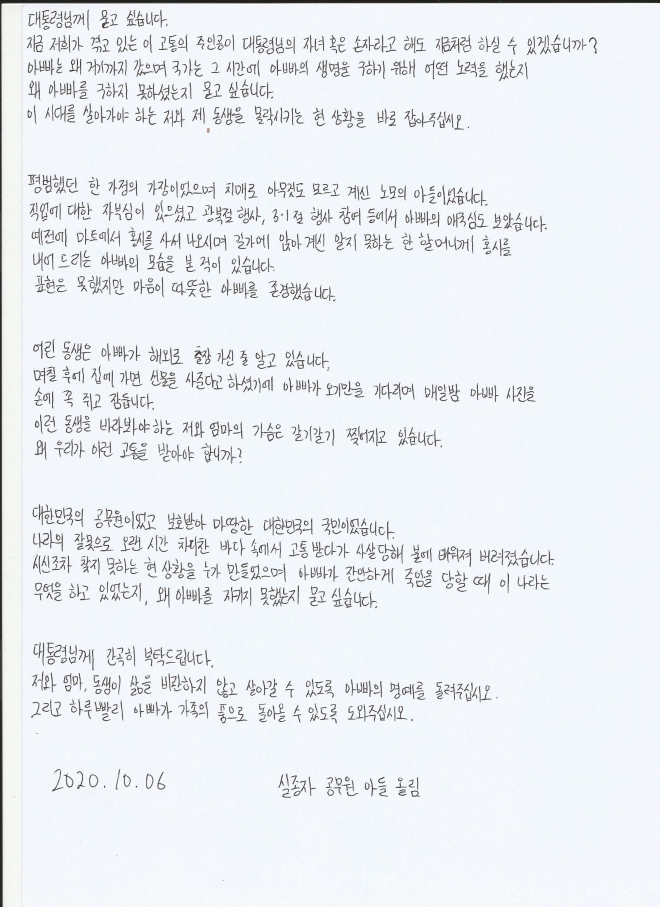 대통령님께 묻고 싶습니다.
지금 저희가 겪고 있는 이 고통의 주인공이 대통령님의 자녀 혹은 손자라고 해도 지금처럼 하실 수 있겠습니까?
아빠는 왜 거기까지 갔으며 국가는 그 시간에 아빠의 생명을 구하기 위해 어떤 노력을 했는지
왜 아빠를 구하지 못하셨는지 묻고 싶습니다.
이 시대를 살아가야 하는 저와 제 동생을 몰락시키는 현 상황을 바로 잡아주십시오.
평범했던 한 가정의 가장이었으며 치매로 아무것도 모르고 계신 노모의 아들이었습니다.
직업에 대한 자부심이 있으셨고 광복절 행사, 3·1절 행사 참여 등에서 아빠의 애국심도 보았습니다.
예전에 마트에서 홍시를 사서 나오시며 길가에 앉아 계신 알지 못하는 한 할머니께 홍시를
내어 드리는 아빠의 모습을 본 적이 있습니다.
표현은 못했지만 마음이 따뜻한 아빠를 존경했습니다.
어린 동생은 아빠가 해외로 출장 가신 줄 알고 있습니다.
며칠 후에 집에 가면 선물을 사준다고 하셨기에 아빠가 오기만을 기다리며 매일밤 아빠 사진을
손에 꼭 쥐고 잠듭니다.
이런 동생을 바라봐야 하는 저와 엄마의 가슴은 갈기갈기 찢어지고 있습니다.
왜 우리가 이런 고통을 받아야 합니까?
대한민국의 공무원이었고 보호받아 마땅한 대한민국의 국민이었습니다.
나라의 잘못으로 오랜 시간 차디찬 바다 속에서 고통 받다가 사살당해 불에 태워져 버려졌습니다.
시신조차 찾지 못하는 현 상황을 누가 만들었으며 아빠가 잔인하게 죽임을 당할 때 이 나라는
무엇을 하고 있었는지, 왜 아빠를 지키지 못했는지 묻고 싶습니다.
대통령님께 간곡히 부탁드립니다.
저와 엄마, 동생이 삶을 비관하지 않고 살아갈 수 있도록 아빠의 명예를 돌려주십시오.
그리고 하루빨리 아빠가 가족의 품으로 돌아올 수 있도록 도와주십시오.
2020.10.06 실종자 공무원 아들 올림